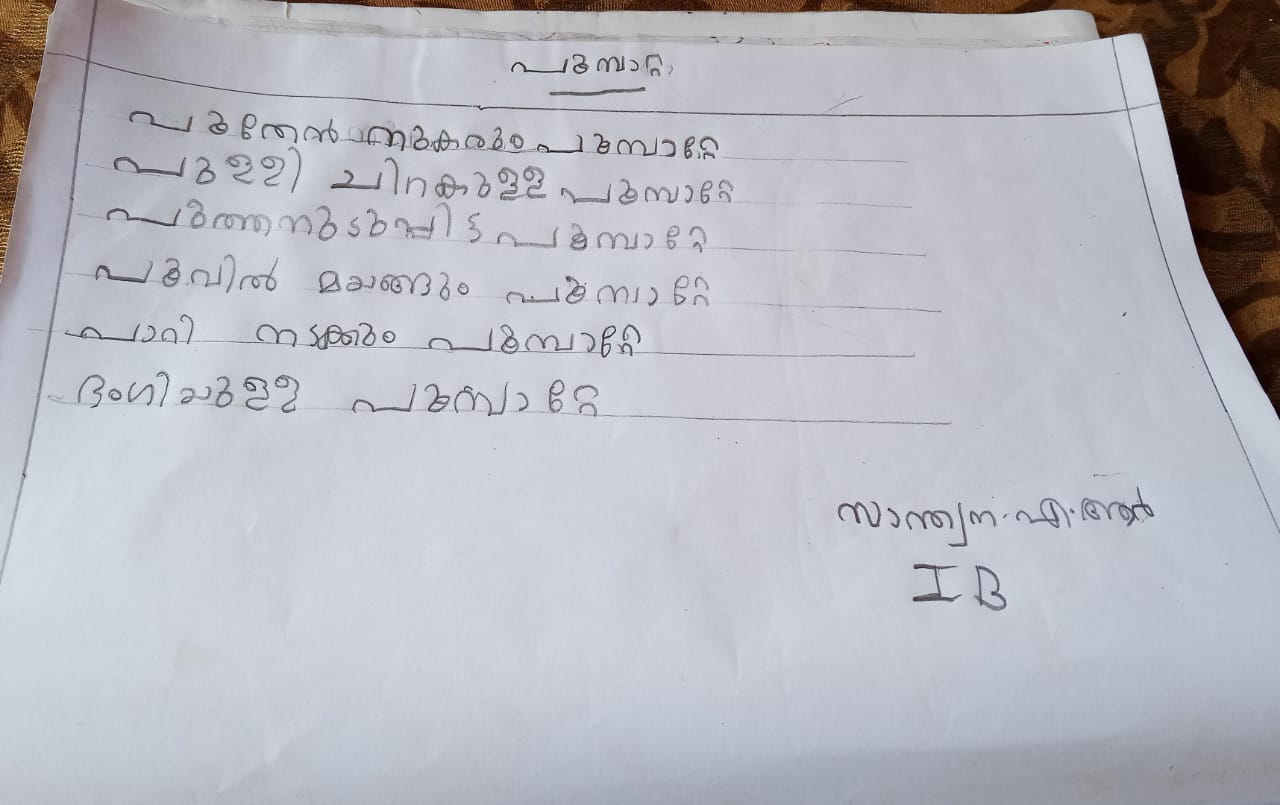 പൂമ്പാറ്റ
പൂന്തേൻ നുകരും പൂമ്പാറ്റേ
പുള്ളി ചിറകുള്ള പൂമ്പാറ്റേ
പുത്തനുടുപ്പിട്ട പൂമ്പാറ്റേ
പൂവിൽ മയങ്ങും പൂമ്പാറ്റേ
പാറി നടക്കും പൂമ്പാറ്റേ
ഭംഗിയുള്ള പൂമ്പാറ്റേ
സാന്ത്വന. എ. ആർ
I B